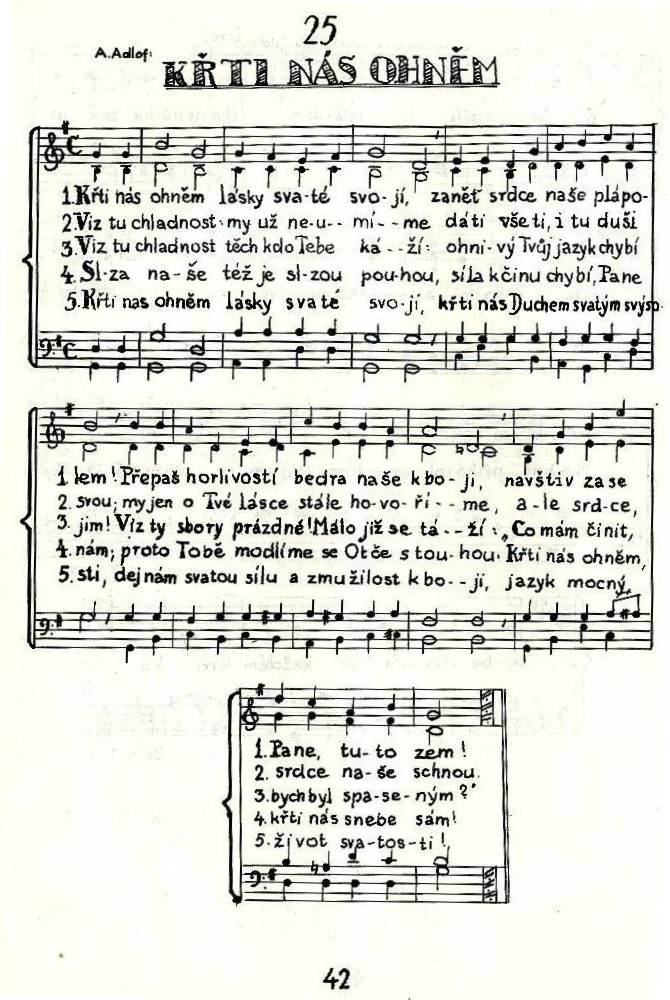 25
A. Adlof:
KŘTI NÁS OHNĚM
1. Křti nás ohněm lásky sva-té svo-jí, zanět srdce naše plápo-
2. Viz tu chladnost: my už ne-u-- mí--me dáti vše ti, i tu duši
3. Viz tu chladnost těch kdo Tebe ká--ží: ohni-vý Tvůj jazyk chybí
4. Sl-za na-še též je sl-zou pou-hou, síla k činu chybí, Pane
5. Křti nas ohněm lásky svaté svo-jí, křti nás Duchem svatým svýso-
1. lem! Přepaš horlivostí bedra naše k bo-ji, navštiv zase
2. svou; my jen o Tvé lásce stále ho-vo-ří--me, a-le srd-ce,
3. jim! Viz ty sbory prázdné! Málo již se tá--ží: „Co mám činit,
4. nám; proto Tobě modlíme se Otče s tou-hou: Křti nás ohněm,
5. sti, dej nám svatou sílu a zmužilost k bo--ji, jazyk mocný,
1. Pane, tu-to zem!
2. srdce na-še schnou.
3. bych byl spa-se-ným?"
4. křti nás s nebe sám!
5. život sva-tos-ti!
42